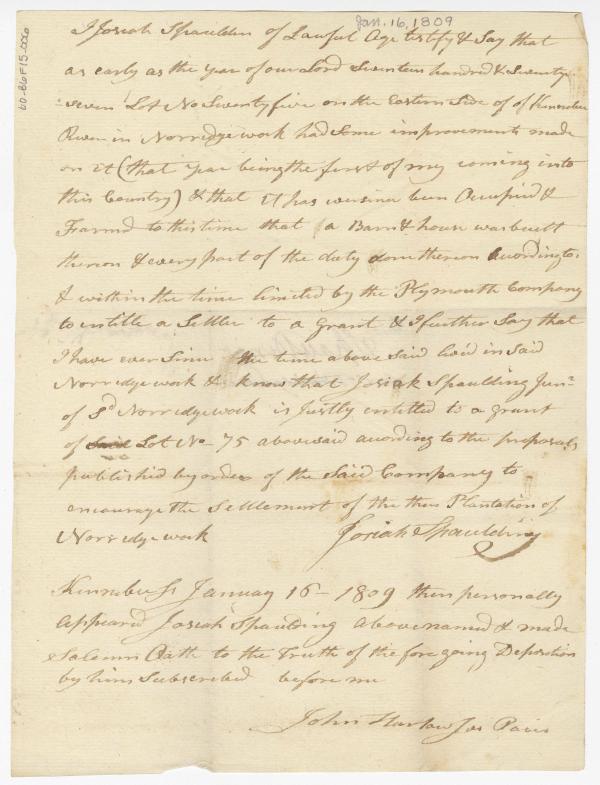 Jan. 16, 1809
I Josiah Spaulden of Lawful Age testify & Say that
as early as the year of our Lord Seventeen hundred & Seventy
seven Lot No Seventy five on the Eastern Side of of Kennebec
River in Norridgework had Some improvements made
on it (that year being the first of my coming into
this Country) & that it has ever since been Occupied &
Farmd to this time that a Barn & house was built
theron & every part of the duty done theron acording to
& within the time limited by the Plymouth Company
to entitle a Settler to a Grant & I further Say that
I have ever Sinc the time above Said liv'd in Said
Norridgework & know that Josiah Spaulding Junr
of Sd Norridgework is Justly entitled to a grant
of Said Lot No 75 abovesaid acording to the proposals
published by order of the Said Company to
encourage the Settlement of the then Plantation of
Norridgework Josiah Spaulding
Kennebec Ss January 16 - 1809 then personally
appeared Josiah Spaulding above named & made
Solemn Oath to the Truth of the fore going Deposition
by him Subscribed before me
John Harlow Jus Pacis